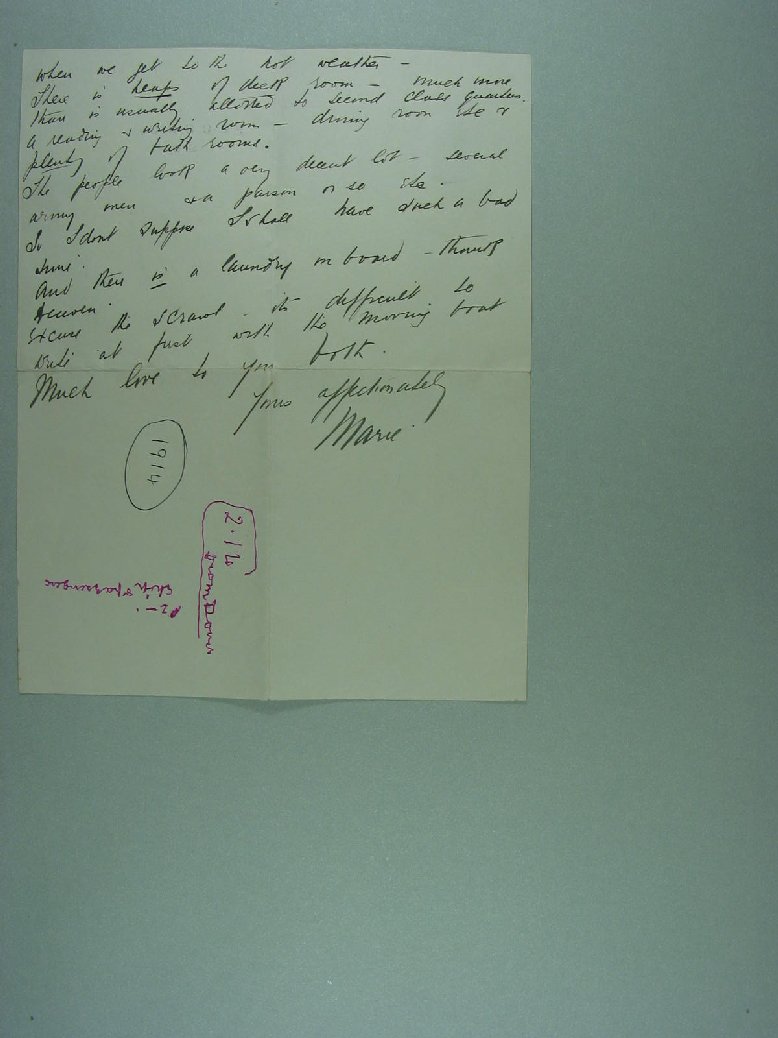 when we get to the hot weather –
There is heaps of deck room – much more
than is usually allotted to second class quarters.
a reading & writing room – dining room etc &
plenty of bath rooms.
The people look a very decent lot – several
army men & a parson or so etc –
So I dont suppose I shall have such a bad
time.
And there is a laundry on board – thank
Heaven.
Excuse the scrawl – its difficult to
write at first with the moving boat
Much love to you both.
Yours affectionately
Marie
1914
2.16
from
ship & passengers